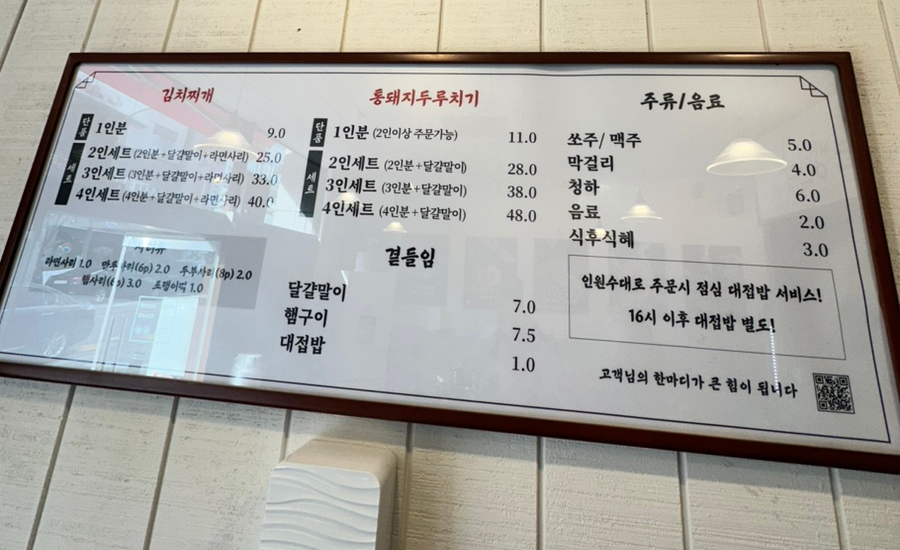 김치찌개
단품
1인분 9.0
세트
2인세트 (2인분+달걀말이+라면사리) 25.0
3인세트 (3인분+달걀말이+라면사리) 33.0
4인세트 (4인분+달걀말이+라면사리) 40.0
라면사리 1.0 만두사리(6p) 2.0 두부사리(8p) 2.0
햄사리(6p) 3.0 조랭이떡 1.0
통돼지두루치기
단품
1인분 (2인이상 주문가능) 11.0
세트
2인세트 (2인분+달걀말이) 28.0
3인세트 (3인분+달걀말이) 38.0
4인세트 (4인분+달걀말이) 48.0
곁들임
달걀말이 7.0
햄구이 7.5
대접밥 1.0
주류/음료
쏘주/ 맥주 5.0
막걸리 4.0
청하 6.0
음료 2.0
식후식혜 3.0
인원수대로 주문시 점심 대접밥 서비스!
16시 이후 대접밥 별도!
고객님의 한마디가 큰 힘이 됩니다